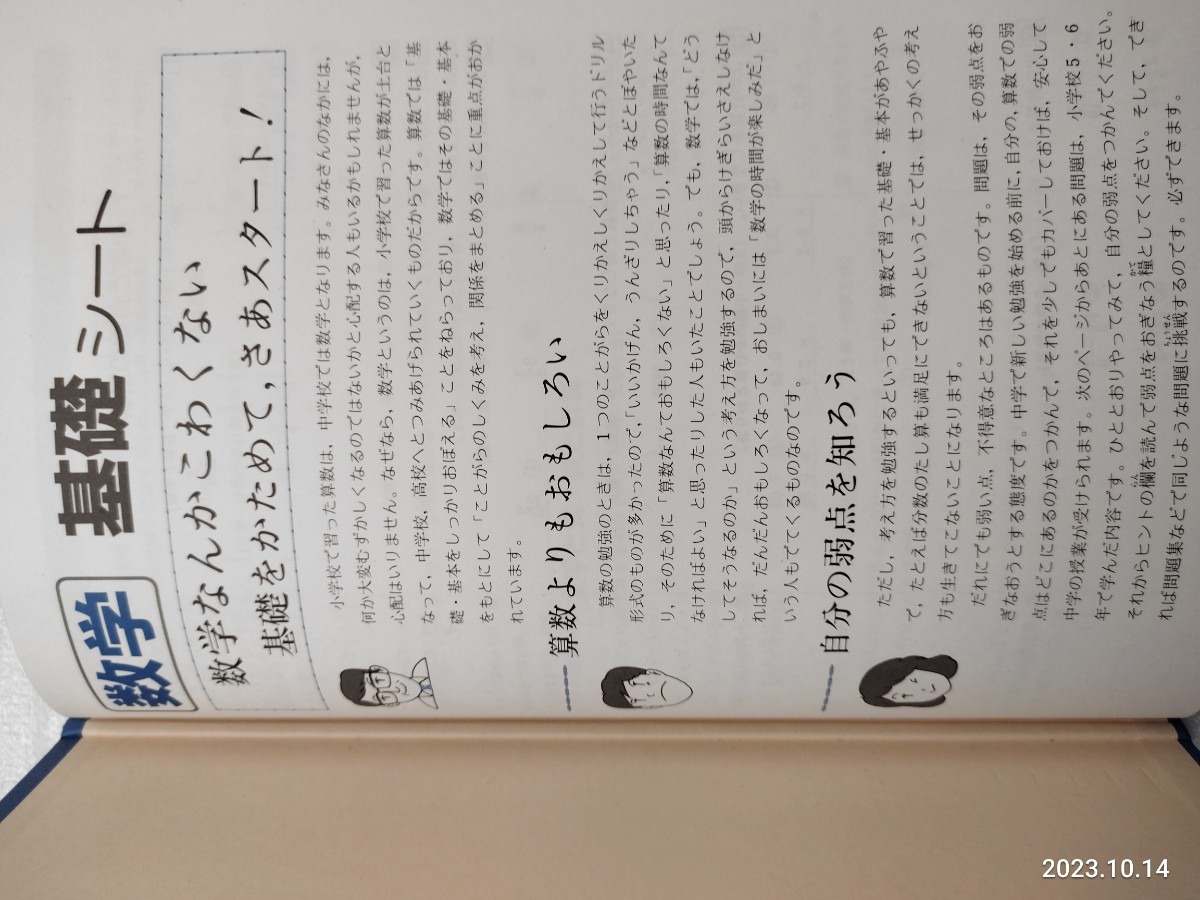 数学 基礎シート
数学なんかこわくない
基礎をかためて，さあスタート！
小学校で習った算数は，中学校では数学となります。みなさんのなかには，
何か大変むずかしくなるのではないかと心配する人もいるかもしれませんが，
心配はいりません。なぜなら，数学というのは，小学校で習った算数が土台と
なって，中学校，高校へとつみあげられていくものだからです。算数では「基
礎・基本をしっかりおぼえる」ことをねらっており，数学ではその基礎・基本
をもとにして「ことがらのしくみを考え，関係をまとめる」ことに重点がおか
れています。
算数よりもおもしろい
算数の勉強のときは，１つのことがらをくりかえしくりかえして行うドリル
形式のものが多かったので，「いいかげん，うんざりしちゃう」などとぼやいた
り，そのために「算数なんておもしろくない」と思ったり，「算数の時間なんて
なければよい」と思ったりした人もいたことでしょう。でも，数学では，「どう
してそうなるのか」という考え方を勉強するので，頭からけぎらいさえしなけ
れば，だんだんおもしろくなって，おしまいには「数学の時間が楽しみだ」と
いう人もでてくるものなのです。
自分の弱点を知ろう
ただし，考え方を勉強するといっても，算数で習った基礎・基本があやふや
で，たとえば分数のたし算も満足にできないということでは，せっかくの考え
方も生きてこないことになります。
だれにでも弱い点，不得意なところはあるものです。問題は，その弱点をお
ぎなおうとする態度です。中学で新しい勉強を始める前に，自分の，算数での弱
点はどこにあるのかをつかんで，それを少しでもカバーしておけば，安心して
中学の授業が受けられます。次のページからあとにある問題は，小学校５・６
年で学んだ内容です。ひととおりやってみて，自分の弱点をつかんでください。
それからヒントの欄を読んで弱点をおぎなう糧としてください。そして，でき
れば問題集などで同じような問題に挑戦するのです。必ずできます。
2023.10.14